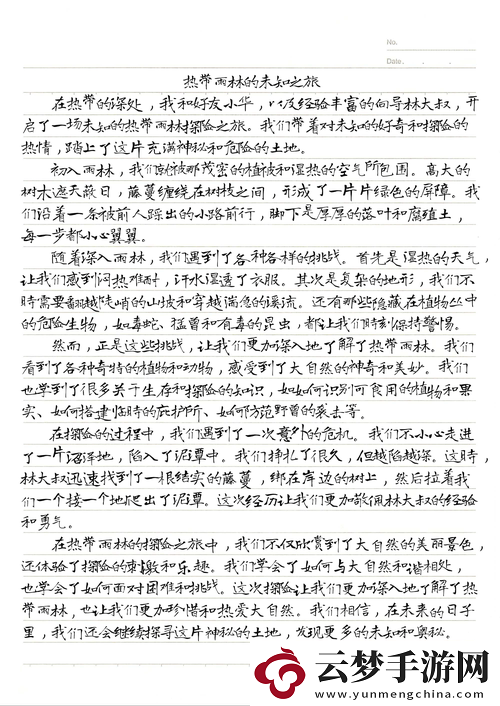 No.
Date . . .
热带雨林的未知之旅
在热带的深处，我和好友小华，以及经验丰富的向导林大叔，开
启了一场未知的热带雨林探险之旅。我们带着对未知的好奇和探险的
热情，踏上了这片充满神秘和危险的土地。
初入雨林，我们就被那茂密的植被和湿热的空气所包围。高大的
树木遮天蔽日，藤蔓缠绕在树枝之间，形成了一片片绿色的屏障。我
们沿着一条被前人踩出的小路前行，脚下是厚厚的落叶和腐殖土，
每一步都小心翼翼。
随着深入雨林，我们遇到了各种各样的挑战。首先是湿热的天气，
让我们感到闷热难耐，汗水湿透了衣服。其次是复杂的地形，我们不
时需要翻越陡峭的山坡和穿越湍急的溪流。还有那些隐藏在植物丛中
的危险生物，如毒蛇、猛兽和有毒的昆虫，都让我们时刻保持警惕。
然而，正是这些挑战，让我们更加深入地了解了热带雨林。我们
看到了各种奇特的植物和动物，感受到了大自然的神奇和美妙。我们
也学到了很多关于生存和探险的知识，如如何识别可食用的植物和果
实、如何搭建临时的庇护所、如何防范野兽的袭击等。
在探险的过程中，我们遇到了一次意外的危机。我们不小心走进
了一片沼泽地，陷入了泥潭中。我们挣扎了很久，但越陷越深。这时，
林大叔迅速找到了一根结实的藤蔓，绑在岸边的树上，然后拉着我
们一个接一个地爬出了泥潭。这次经历让我们更加敬佩林大叔的经验
和勇气。
在热带雨林的探险之旅中，我们不仅欣赏到了大自然的美丽景色，
还体验了探险的刺激和乐趣。我们学会了如何与大自然和谐相处，
也学会了如何面对困难和挑战。这次探险让我们更加深入地了解了热
带雨林，也让我们更加珍惜和热爱大自然。我们相信，在未来的日子
里，我们还会继续探寻这片神秘的土地，发现更多的未知和奥秘。
云梦手游网
www.yunmengchina.com